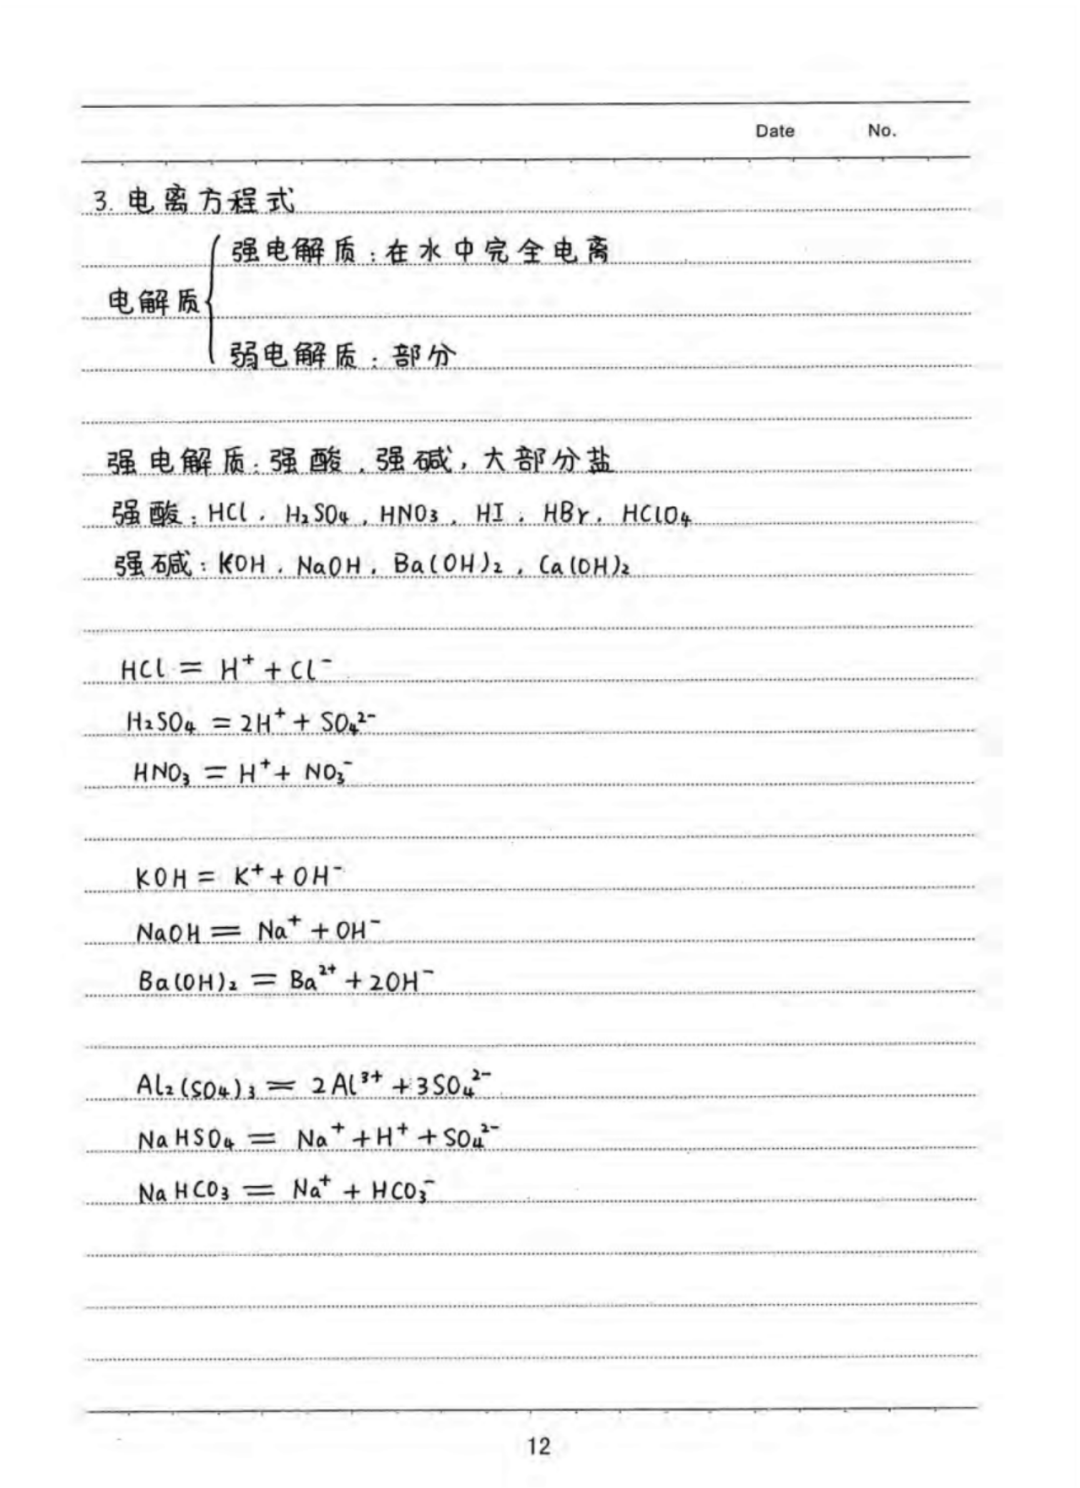 Date No.
3. 电离方程式
强电解质:在水中完全电离
电解质{
弱电解质:部分
强电解质:强酸,强碱,大部分盐
强酸:HCl,H₂SO₄,HNO₃,HI,HBr,HClO₄
强碱:KOH,NaOH,Ba(OH)₂,Ca(OH)₂
HCl = H⁺ + Cl⁻
H₂SO₄ = 2H⁺ + SO₄²⁻
HNO₃ = H⁺ + NO₃⁻
KOH = K⁺ + OH⁻
NaOH = Na⁺ + OH⁻
Ba(OH)₂ = Ba²⁺ + 2OH⁻
Al₂(SO₄)₃ = 2Al³⁺ + 3SO₄²⁻
NaHSO₄ = Na⁺ + H⁺ + SO₄²⁻
NaHCO₃ = Na⁺ + HCO₃⁻
12